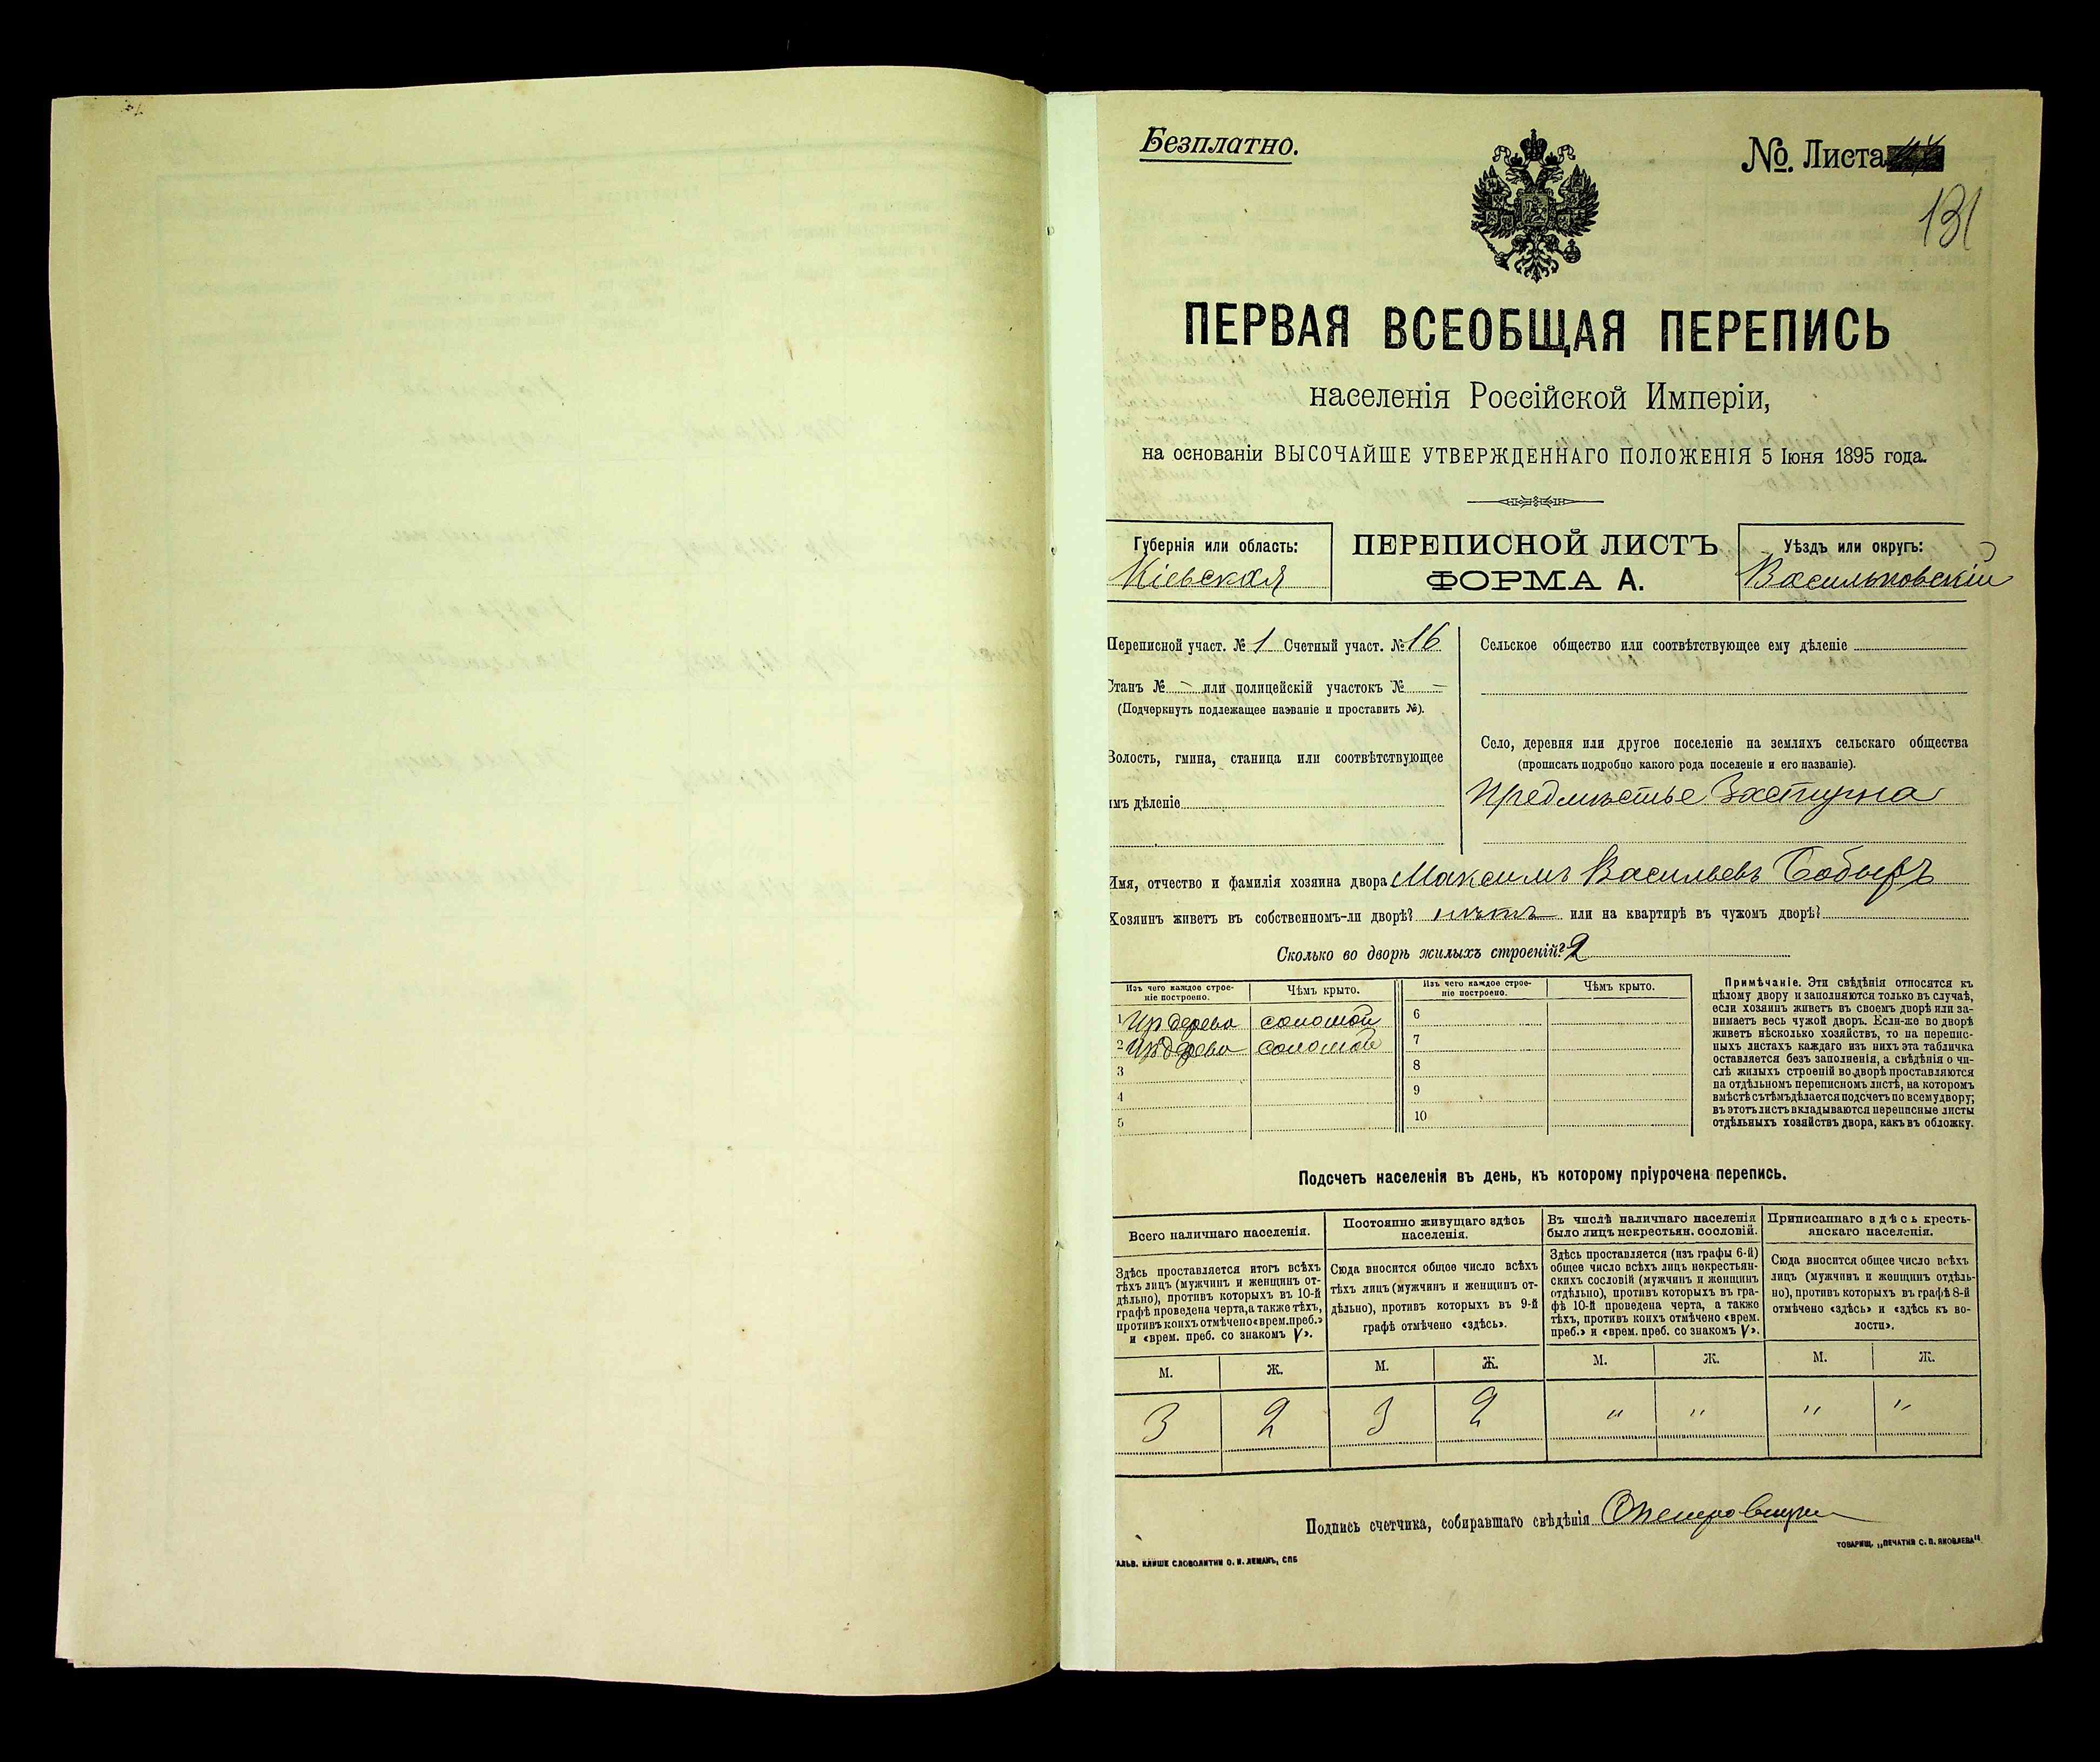 Безплатно.
№. Листа
131
ПЕРВАЯ ВСЕОБЩАЯ ПЕРЕПИСЬ
населенія Россійской Имперіи,
на основаніи ВЫСОЧАЙШЕ УТВЕРЖДЕННАГО ПОЛОЖЕНІЯ 5 Іюня 1895 года.
Губернія или область:
Кіевская
ПЕРЕПИСНОЙ ЛИСТЪ
ФОРМА А.
Уѣздъ или округъ:
Васильковскій
Переписной участ. № 1 Счетный участ. № 16
Станъ № – или полицейскій участокъ № –
(Подчеркнуть подлежащее названіе и проставить №).
Волость, гмина, станица или соотвѣтствующее
имъ дѣленіе
Сельское общество или соотвѣтствующее ему дѣленіе
Село, деревня или другое поселеніе на земляхъ сельскаго общества
(прописать подробно какого рода поселеніе и его названіе).
Предмѣстье Застугна
Имя, отчество и фамилія хозяина двора Максимъ Васильевъ Бобырь
Хозяинъ живетъ въ собственномъ-ли дворѣ? или на квартирѣ въ чужомъ дворѣ?
Сколько во дворѣ жилыхъ строеній? 2
Изъ чего каждое строе-
ніе построено.
Чѣмъ крыто.
Изъ чего каждое строе-
ніе построено.
Чѣмъ крыто.
1 Изъ дерева соломой 6
2 Изъ дерева соломой 7
3 8
4 9
5 10
Примѣчаніе. Эти свѣдѣнія относятся къ
цѣлому двору и заполняются только въ случаѣ,
если хозяинъ живетъ въ своемъ дворѣ или за-
нимаетъ весь чужой дворъ. Если-же во дворѣ
живетъ нѣсколько хозяйствъ, то на перепис-
ныхъ листахъ каждаго изъ нихъ эта табличка
оставляется безъ заполненія, а свѣдѣнія о чи-
слѣ жилыхъ строеній во дворѣ проставляются
на отдѣльномъ переписномъ листѣ, на которомъ
вмѣстѣ съ тѣмъ дѣлается подсчетъ по всему двору;
въ этотъ листъ вкладываются переписные листы
отдѣльныхъ хозяйствъ двора, какъ въ обложку.
Подсчетъ населенія въ день, къ которому пріурочена перепись.
Всего наличнаго населенія.
Здѣсь проставляется итогъ всѣхъ
тѣхъ лицъ (мужчинъ и женщинъ от-
дѣльно), противъ которыхъ въ 10-й
графѣ проведена черта, а также тѣхъ,
противъ коихъ отмѣчено «врем. преб.»
и «врем. преб. со знакомъ V».
Постоянно живущаго здѣсь
населенія.
Сюда вносится общее число всѣхъ
тѣхъ лицъ (мужчинъ и женщинъ от-
дѣльно), противъ которыхъ въ 9-й
графѣ отмѣчено «здѣсь».
Въ числѣ наличнаго населенія
было лицъ некрестьян. сословій.
Здѣсь проставляется (изъ графы 6-й)
общее число всѣхъ лицъ некрестьян-
скихъ сословій (мужчинъ и женщинъ
отдѣльно), противъ которыхъ въ гра-
фѣ 10-й проведена черта, а также
тѣхъ, противъ коихъ отмѣчено «врем.
преб.» и «врем. преб. со знакомъ V».
Приписаннаго здѣсь кресть-
янскаго населенія.
Сюда вносится общее число всѣхъ
лицъ (мужчинъ и женщинъ отдѣль-
но), противъ которыхъ въ графѣ 8-й
отмѣчено «здѣсь» и «здѣсь къ во-
лости».
М. Ж. М. Ж. М. Ж. М. Ж.
3 2 3 2 " " " "
Подпись счетчика, собиравшаго свѣдѣнія
ГАЛЬВ. КЛИШЕ СЛОВОЛИТНИ О. И. ЛЕМАНЪ, СПБ
ТОВАРИЩ. „ПЕЧАТНЯ С. П. ЯКОВЛЕВА“